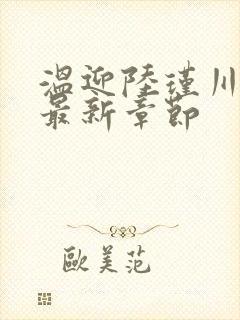 温迎陸瑾川
最新章節
歐美范